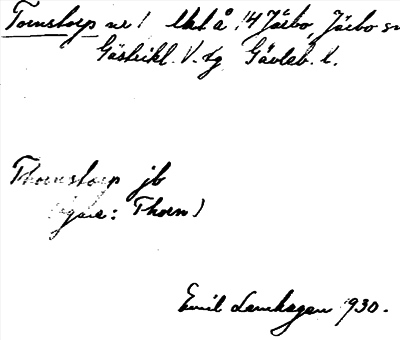 Tornstorp nr 1 lht å 14 Järbo, Järbo sn
Gästrikl. V. tg Gävleb. l.
Thornstorp jb
ägare: Thorn)
Emil Lernhagen 1930.